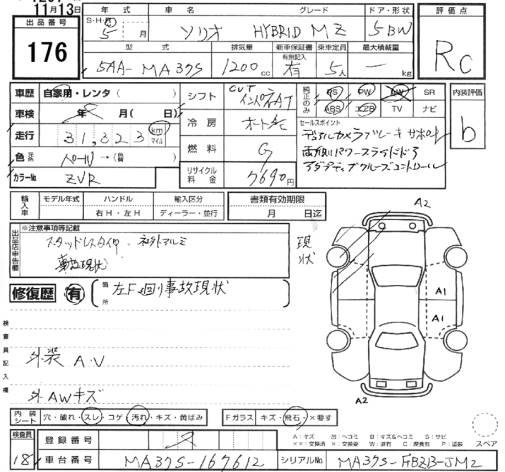 11月13日
出品番号
176
年式 車名 グレード ドア・形状
S・H・R 5 月 ソリオ HYBRID MZ 5BW
型式 排気量 新車保証書 乗車定員 最大積載量
有無記入
5AA-MA37S 1200 cc 有 5人 — kg
評価点
RC
車歴 自家用・レンタ( )
車検 年 月( 日)
走行 31,323 km マイル
色 パール →( 替)
カラーNo ZVR
シフト CVT インパネAT
冷房 オートAC
燃料 G
リサイクル料金 7690円
純正のみ PS PW AW SR
ABS エアB TV ナビ
セールスポイント
デュアルカメラブレーキサポート
両側パワースライドドア
アダプティブクルーズコントロール
内装評価
b
輸入車 モデル年式 ハンドル 輸入区分
年 右H・左H ディーラー・並行
書類有効期限
月 日迄
出品店申告欄
※注意事項等記載
スタッドレスタイヤ・社外アルミ
事故現状
修復歴 有
箇所 左F回り事故現状
現状
A2
A1
A1
A2
検査員記入欄
外装 A・V
外AWキズ
内装シート 穴・破れ・スレ・コゲ・汚れ・キズ・黄ばみ
Fガラス キズ・飛石・×要す
A:キズ U:ヘコミ B:キズ&ヘコミ S:サビ
スペア
検査員 18
登録番号
車台番号 MA37S-167612
シリアルNo. MA37S-FB2B-JM2